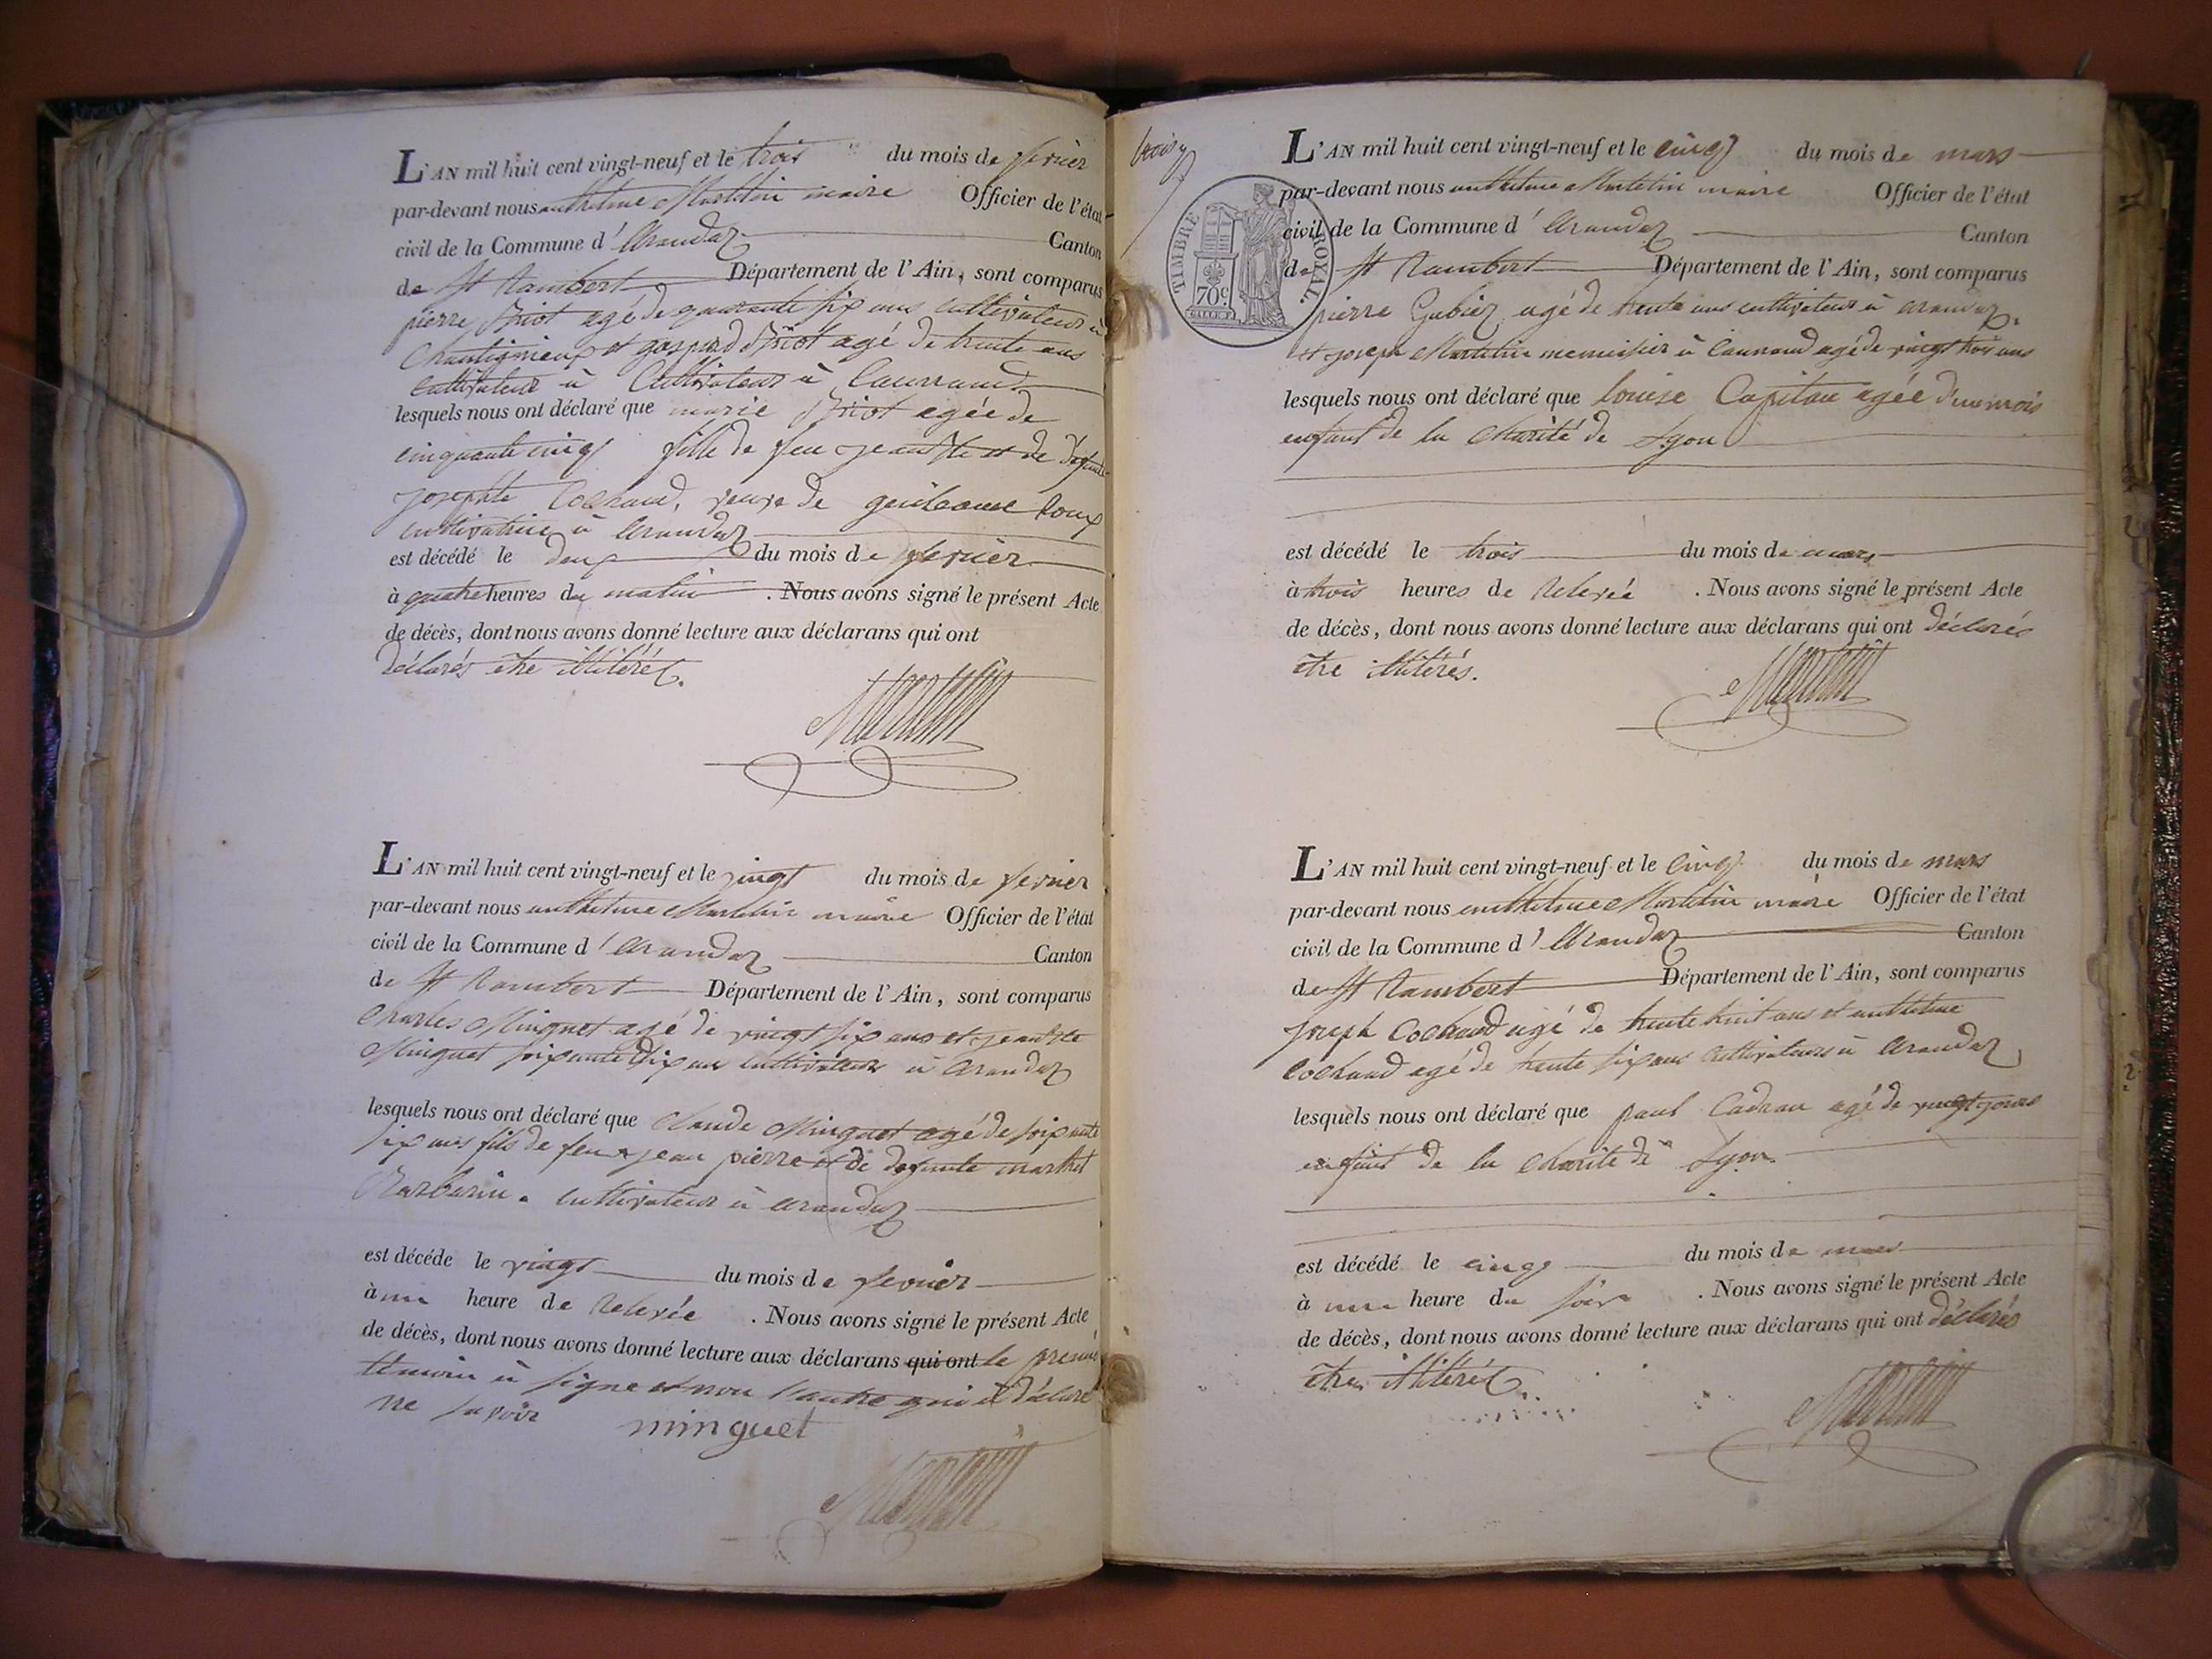 L'AN mil huit cent vingt-neuf et le trois du mois de fevrier
par-devant nous anthelme Martelin maire Officier de l'état
civil de la Commune d'Arandaz Canton
de St Rambert Département de l'Ain, sont comparus
pierre agé de quarante six ans cultivateur à
et gaspard agé de trente ans
cultivateur à Cultivateur à
lesquels nous ont déclaré que marie agée de
cinquante cinq fille de feu jean Bte et de défunte
josephte Cochaud, veuve de guilleaume Roux
cultivatrice à Arandaz
est décédé le deux du mois de fevrier
à quatre heures du matin . Nous avons signé le présent Acte
de décès, dont nous avons donné lecture aux déclarans qui ont
déclarés etre illitérés.
Martelin
L'AN mil huit cent vingt-neuf et le vingt du mois de fevrier
par-devant nous anthelme Martelin maire Officier de l'état
civil de la Commune d'Arandaz Canton
de St Rambert Département de l'Ain, sont comparus
Charles Minguet agé de vingt six ans et jean Bte
Minguet soixante dix ans cultivateurs à Arandaz
lesquels nous ont déclaré que Claude Minguet agé de soixante
six ans fils de feu jean pierre et de defunte
Barbarin. cultivateur à arandaz
est décéde le vingt du mois de fevrier
à une heure de Relevée . Nous avons signé le présent Acte
de décès, dont nous avons donné lecture aux déclarans qui ont le premier
témoin à signé et non l'autre qui à déclaré
ne savoir minguet
Martelin
trois
TIMBRE ROYAL.
70c.
L'AN mil huit cent vingt-neuf et le cinq du mois de mars
par-devant nous anthelme Martelin maire Officier de l'état
civil de la Commune d'Arandaz Canton
de St Rambert Département de l'Ain, sont comparus
pierre Gubiez agé de trente ans cultivateur à arandaz.
et joseph Martelin menuisier à agé de vingt trois ans
lesquels nous ont déclaré que louise Capitan agée d'un mois
enfant de la Charité de Lyon
est décédé le trois du mois de mars
à trois heures de Relevée . Nous avons signé le présent Acte
de décès, dont nous avons donné lecture aux déclarans qui ont déclarés
etre illitérés.
Martelin
L'AN mil huit cent vingt-neuf et le cinq du mois de mars
par-devant nous anthelme Martelin maire Officier de l'état
civil de la Commune d'Arandaz Canton
de St Rambert Département de l'Ain, sont comparus
joseph Cochaud agé de trente huit ans et anthelme
Cochaud agé de trente six ans Cultivateurs à Arandaz
lesquels nous ont déclaré que paul Cadran agé de vingt jours
enfant de la Charité de Lyon.
est décédé le cinq du mois de mars
à une heure du soir . Nous avons signé le présent Acte
de décès, dont nous avons donné lecture aux déclarans qui ont déclarés
etre illitérés.
Martelin